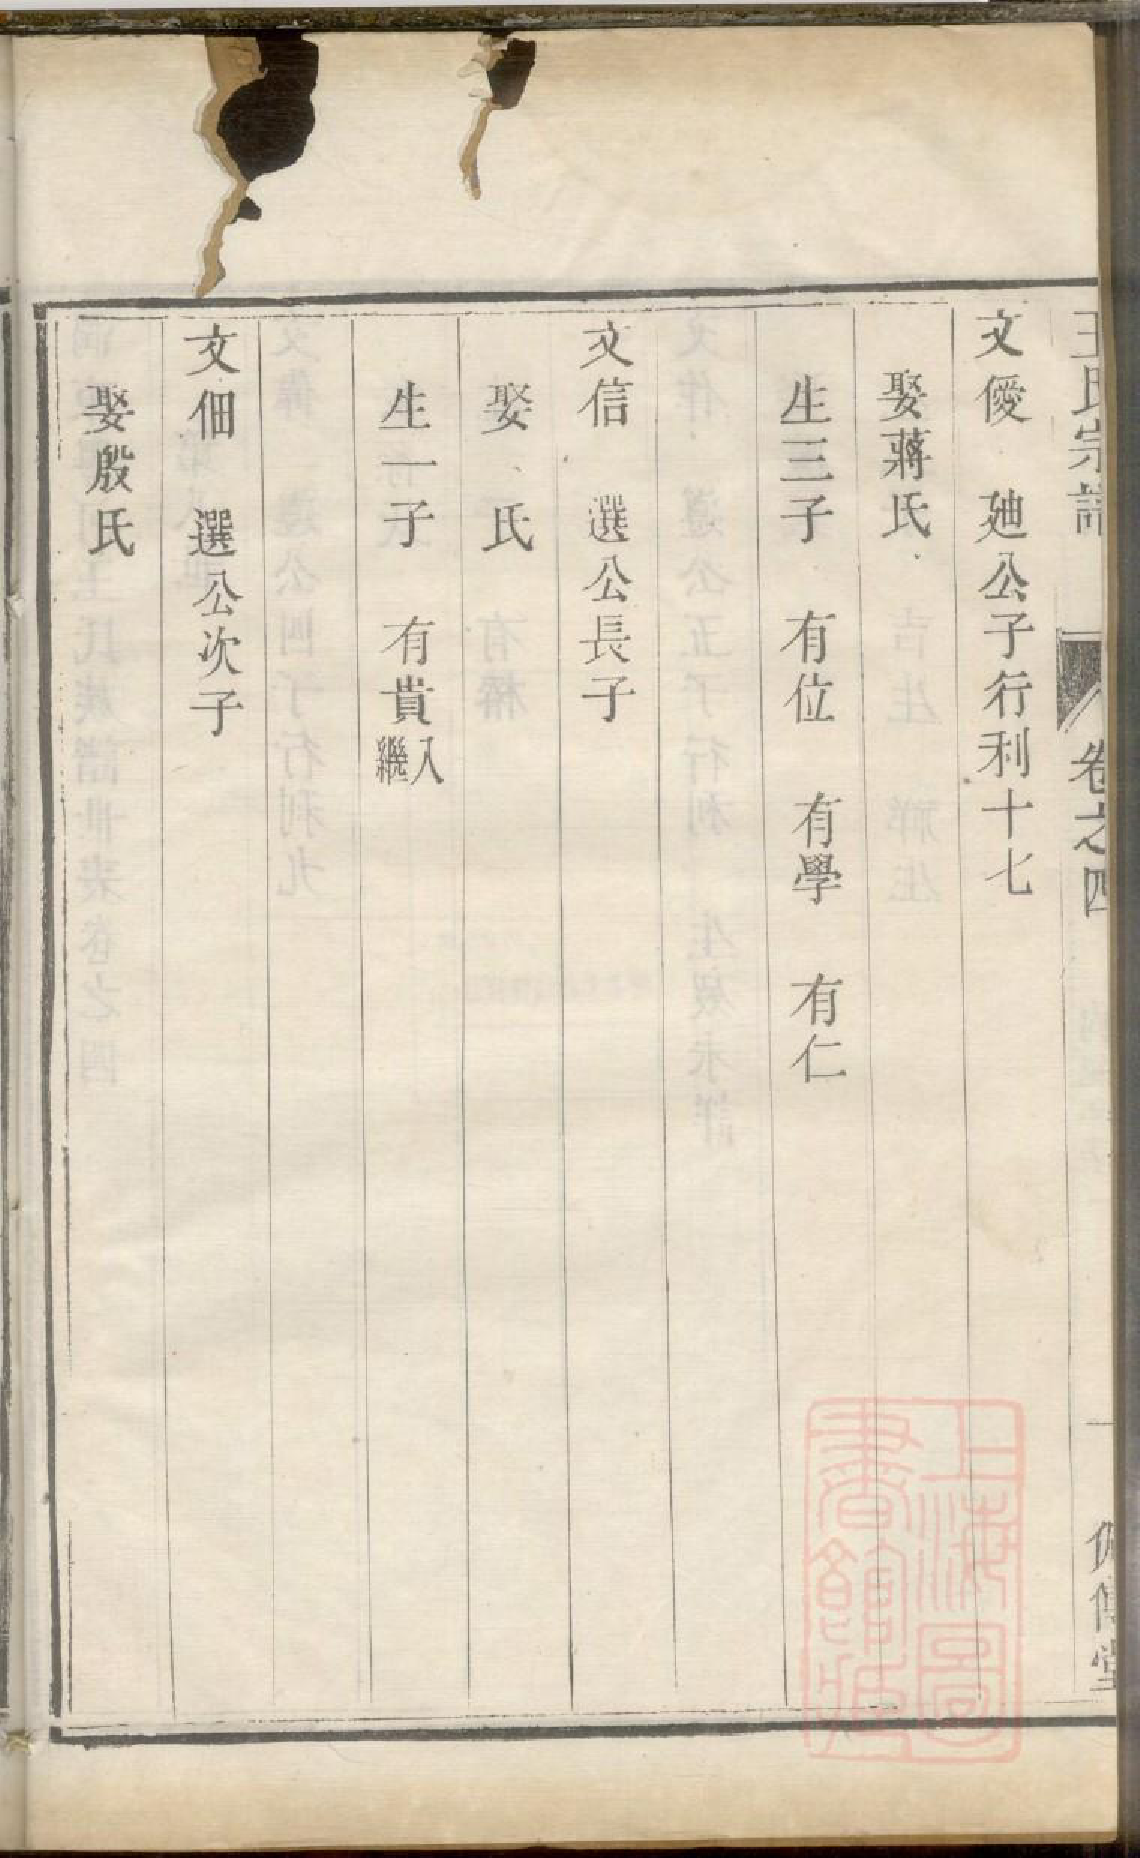 王氏宗譜
卷之四
一
堂
文優　廸公子行利十七
娶蔣氏
生三子　有位　有學　有仁
文信　選公長子
娶　氏
生一子　有貴入繼
文佃　選公次子
娶殷氏
上海圖書館藏